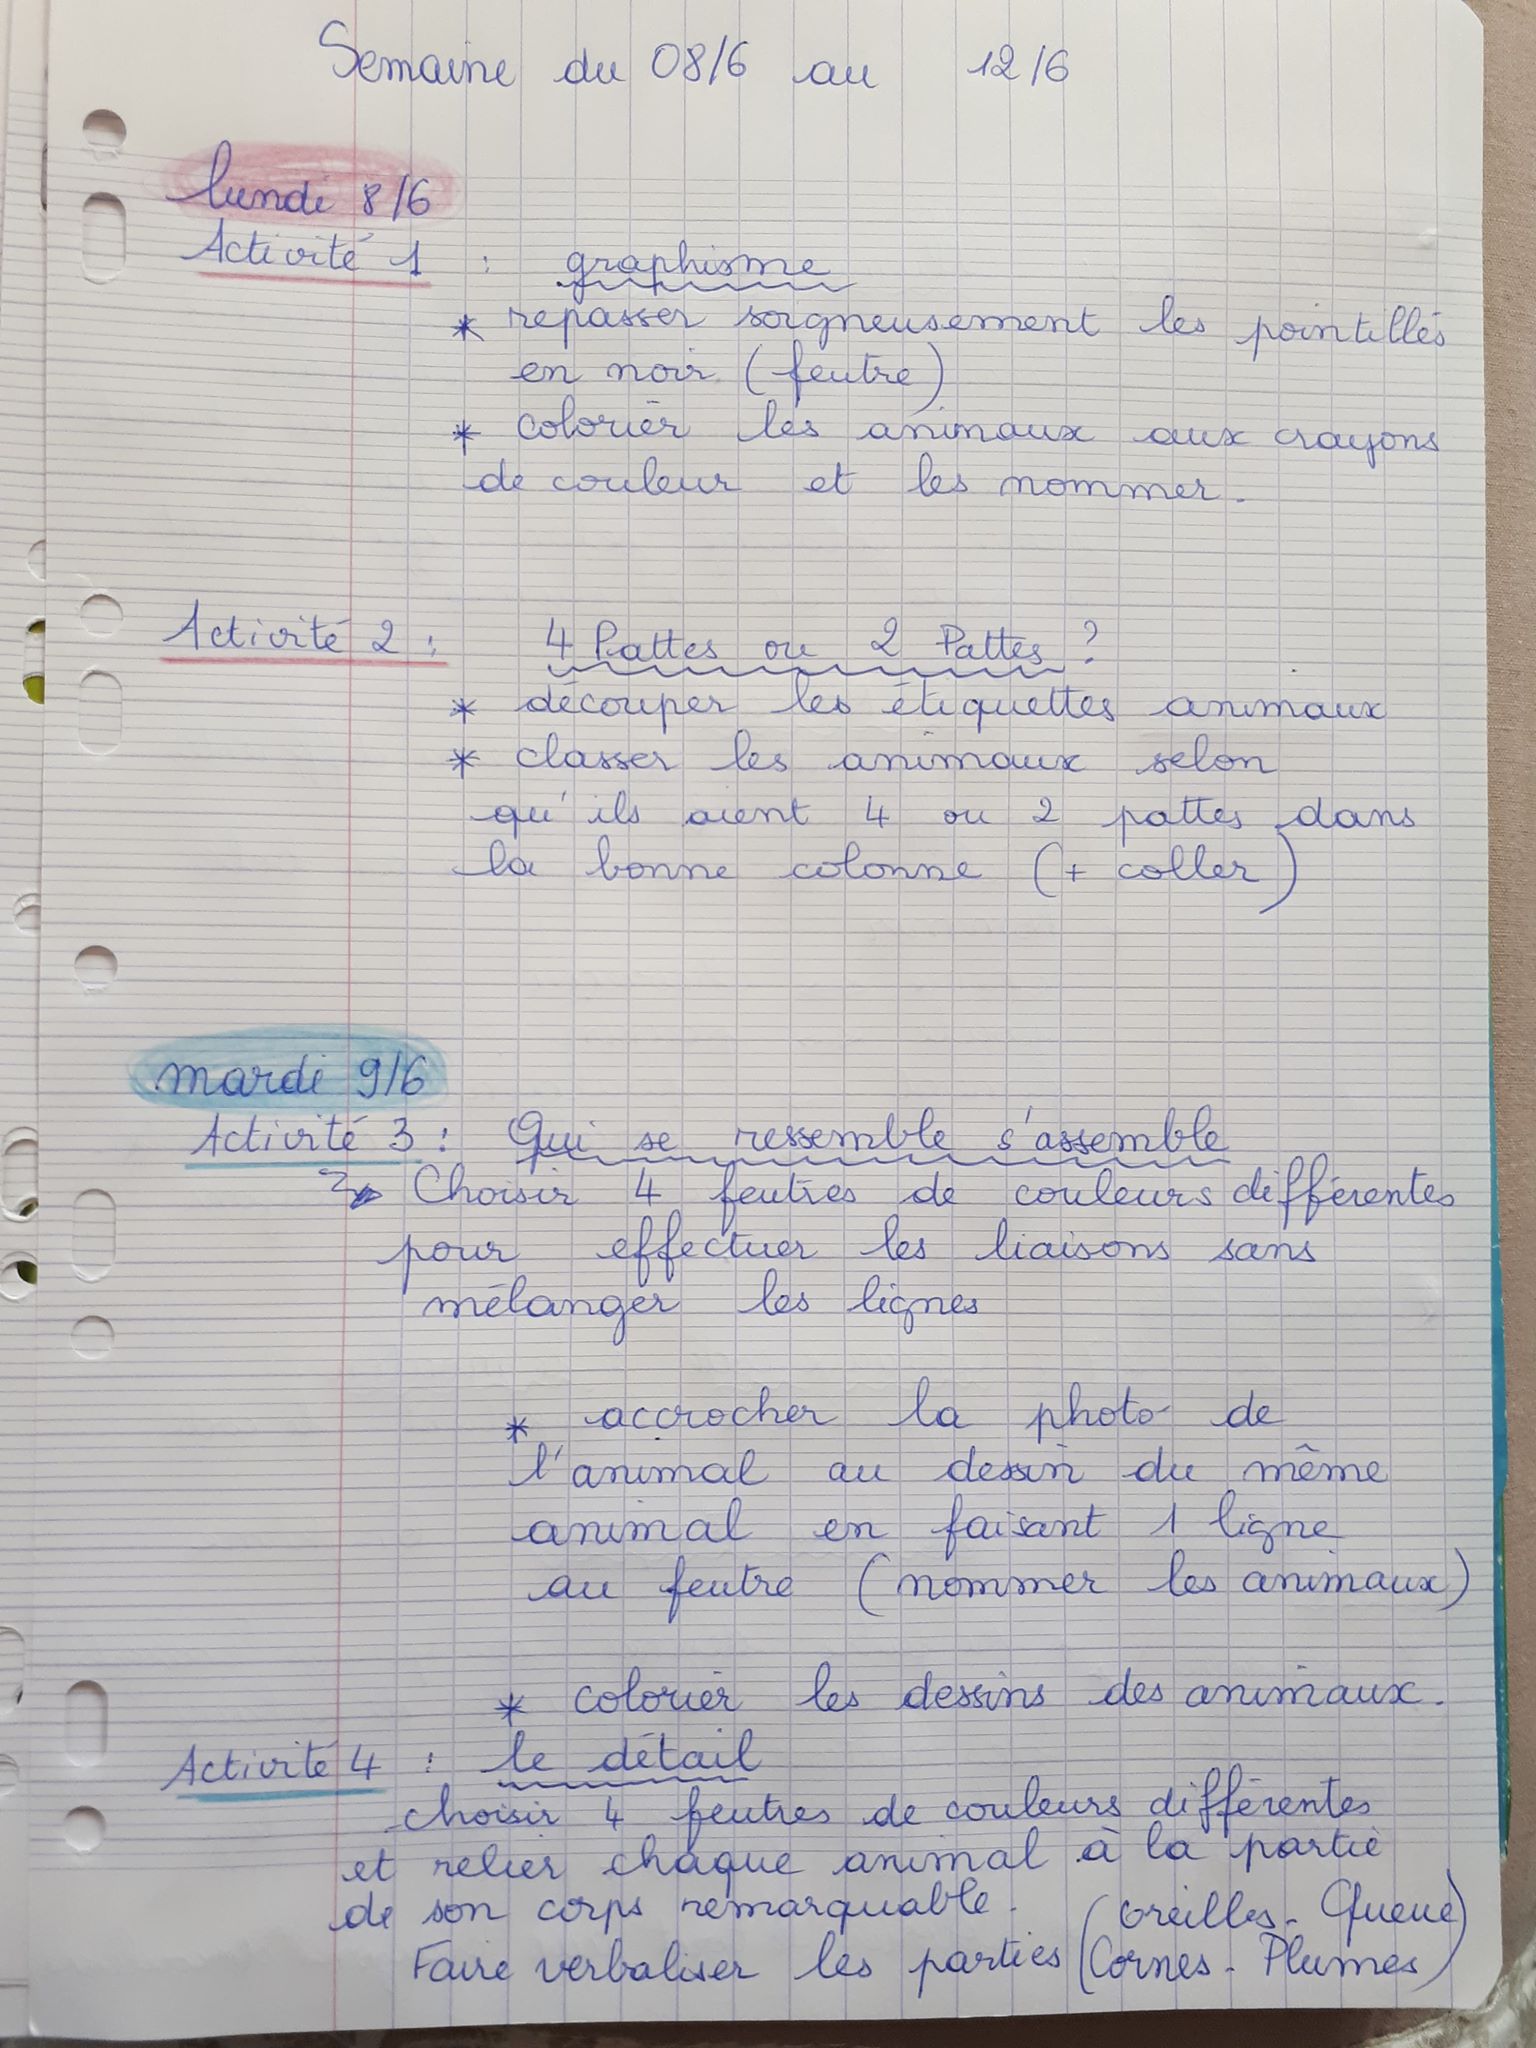 Semaine du 08/6 au 12/6
lundi 8/6
Activité 1 : graphisme
* repasser soigneusement les pointillés
en noir (feutre)
* colorier les animaux aux crayons
de couleur et les nommer.
Activité 2 : 4 Pattes ou 2 Pattes ?
* découper les étiquettes animaux
* classer les animaux selon
qu'ils aient 4 ou 2 pattes dans
la bonne colonne (+ coller)
mardi 9/6
Activité 3 : Qui se ressemble s'assemble
Choisir 4 feutres de couleurs différentes
pour effectuer les liaisons sans
mélanger les lignes
* accrocher la photo de
l'animal au dessin du même
animal en faisant 1 ligne
au feutre (nommer les animaux)
* colorier les dessins des animaux.
Activité 4 : le détail
choisir 4 feutres de couleurs différentes
et relier chaque animal à la partie
de son corps remarquable. (oreilles - Queue
Faire verbaliser les parties Cornes - Plumes)